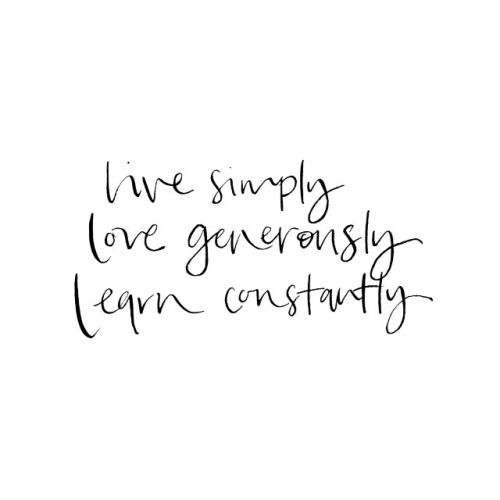 live simply
love generously
learn constantly